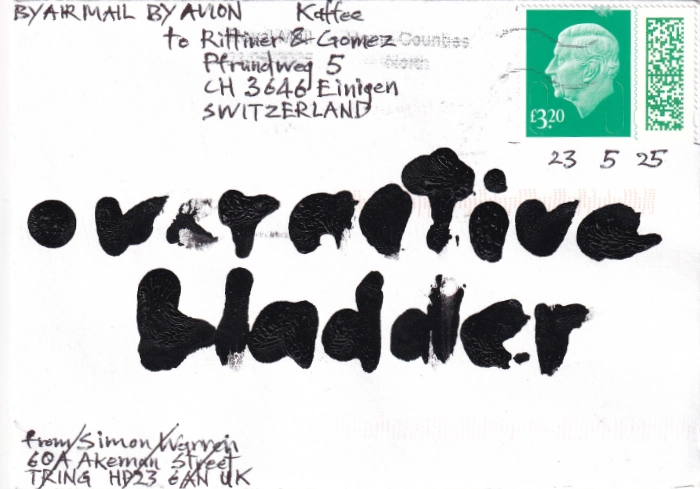 BY AIR MAIL BY AVION Kaffee
to Rittiner & Gomez
Pfrundweg 5
CH 3646 Einigen
SWITZERLAND
Counties
North
£3.20
23 5 25
overactive
bladder
from/Simon/Warren
60A Akeman Street
TRING HP23 6AN UK